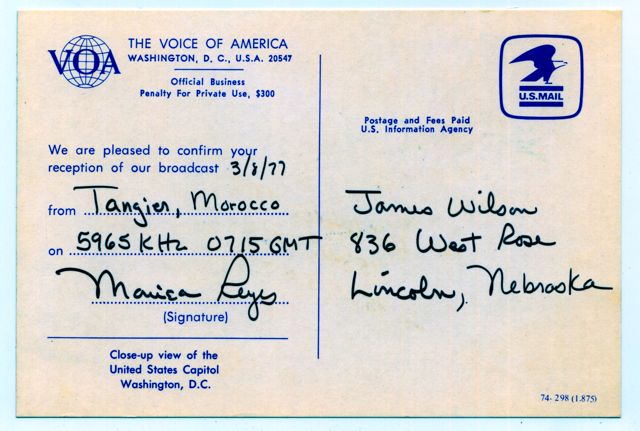 VOA
THE VOICE OF AMERICA
WASHINGTON, D. C., U.S.A. 20547
Official Business
Penalty For Private Use, $300
We are pleased to confirm your
reception of our broadcast 3/8/77
from Tangier, Morocco
on 5965 KHz 0715 GMT
Monica Reyes
(Signature)
Close-up view of the
United States Capitol
Washington, D.C.
U.S. MAIL
Postage and Fees Paid
U.S. Information Agency
James Wilson
836 West Rose
Lincoln, Nebraska
74-298 (1.875)